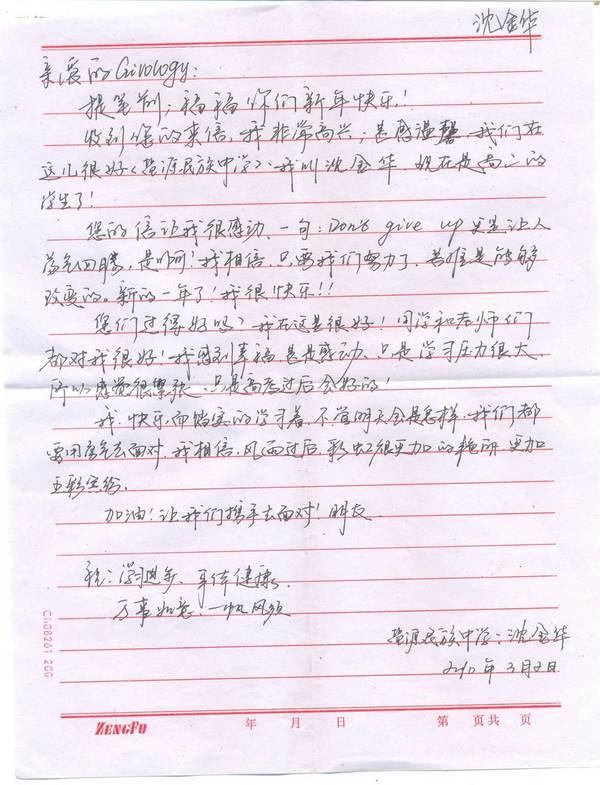 沈金华
亲爱的Givology:
提笔前,福福你们新年快乐!
收到您的来信,我非常高兴,甚感温馨.我们在
这儿很好(盐源民族中学).我叫沈金华.现在是高二的
学生了!
您的信让我很感动.一句:Don't give up 更是让人
勇气回腾,是啊!我相信.只要我们努力了.苦难是能够
改变的。新的一年了!我很快乐!!
您们过得好吗?我在这里很好!同学和老师们
都对我很好!我感到幸福.甚是感动、只是学习压力很大.
所以感觉很紧张.只是高考过后会好的!
我.快乐而踏实的学习着,不管明天会是怎样.我们都
要用勇气去面对.我相信.风雨过后.彩虹很更加的艳丽.更加
五彩宾纷.
加油!让我们携手去面对!朋友
祝:学习进步、身体健康.
万事如意.一帆风顺
盐源民族中学:沈金华
2010年3月2日
CH08261 200
ZENGFU 年 月 日 第 页共 页